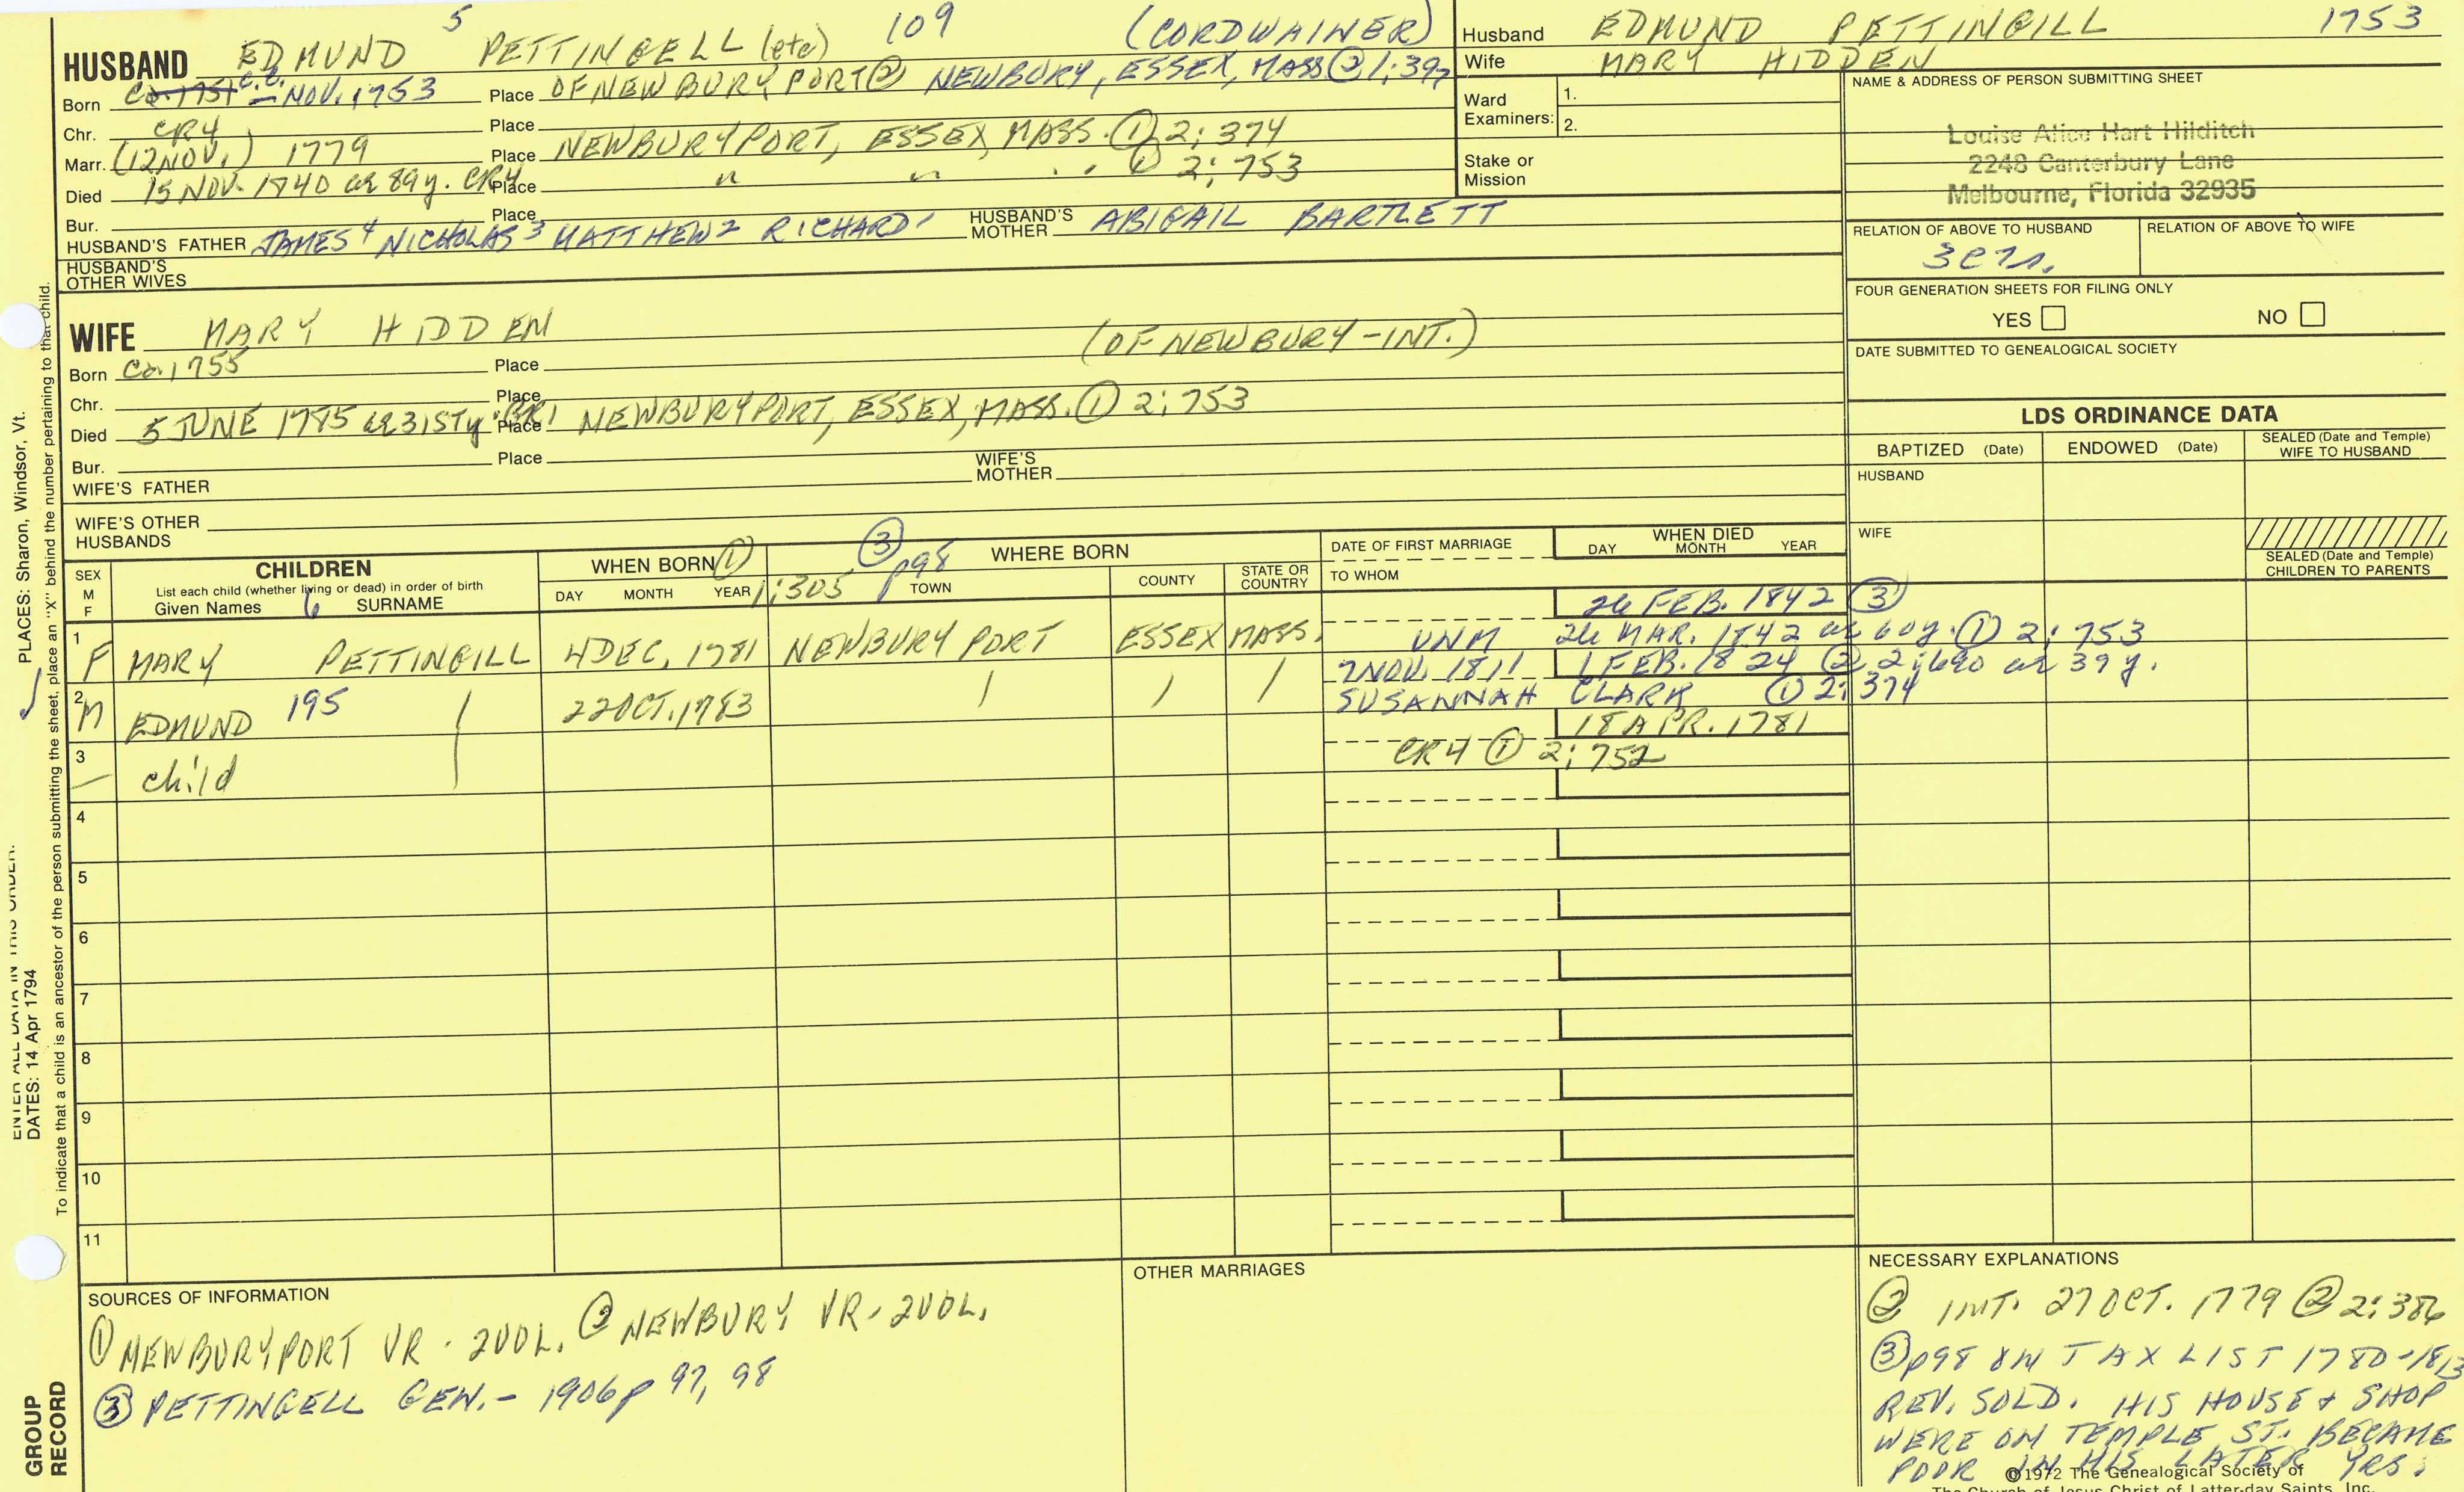 HUSBAND EDMUND 5 PETTINGELL (etc) 109 (CORDWAINER)
Born Ca. 1751 C.R. – NOV. 1753 Place OF NEWBURYPORT ② NEWBURY, ESSEX, MASS ② 1:397
Chr. CR4 Place
Marr. (12 NOV.) 1779 Place NEWBURYPORT, ESSEX, MASS. ① 2:374
Died 15 NOV. 1840 ae 89 y. CR4 Place " " " ① 2:753
Bur. Place
HUSBAND'S FATHER JAMES 4 NICHOLAS 3 MATTHEW 2 RICHARD 1 HUSBAND'S MOTHER ABIGAIL BARTLETT
HUSBAND'S OTHER WIVES
Husband EDMUND PETTINGILL 1753
Wife MARY HIDDEN
Ward Examiners: 1.
2.
Stake or Mission
NAME & ADDRESS OF PERSON SUBMITTING SHEET
Louise Alice Hart Hilditch
2248 Canterbury Lane
Melbourne, Florida 32935
RELATION OF ABOVE TO HUSBAND
RELATION OF ABOVE TO WIFE
FOUR GENERATION SHEETS FOR FILING ONLY
YES NO
DATE SUBMITTED TO GENEALOGICAL SOCIETY
WIFE MARY HIDDEN (OF NEWBURY-INT.)
Born Ca. 1755 Place
Chr. Place
Died 5 JUNE 1785 ae 31sty. Place NEWBURYPORT, ESSEX, MASS. ① 2:753
Bur. Place
WIFE'S FATHER WIFE'S MOTHER
WIFE'S OTHER HUSBANDS
LDS ORDINANCE DATA
BAPTIZED (Date) ENDOWED (Date) SEALED (Date and Temple) WIFE TO HUSBAND
HUSBAND
WIFE
SEALED (Date and Temple) CHILDREN TO PARENTS
SEX M F
CHILDREN
List each child (whether living or dead) in order of birth
Given Names 6 SURNAME
WHEN BORN ① 1:305
DAY MONTH YEAR
③ p98 WHERE BORN
TOWN COUNTY STATE OR COUNTRY
DATE OF FIRST MARRIAGE
TO WHOM
WHEN DIED
DAY MONTH YEAR
26 FEB. 1842 ③
1 F MARY PETTINGILL 4 DEC. 1781 NEWBURYPORT ESSEX MASS. UNM 26 MAR. 1842 ae 60 y. ① 2:753
7 NOV. 1811 1 FEB. 1824 ② 2:690 ae 39 y.
2 M EDMUND 195 / 22 OCT. 1783 / / / SUSANNAH CLARK ① 2:374
18 APR. 1781
3 – child CR4 ① 2:752
4
5
6
7
8
9
10
11
SOURCES OF INFORMATION
① NEWBURYPORT VR - 2 VOL. ② NEWBURY VR - 2 VOL.
③ PETTINGELL GEN. - 1906 p 97, 98
OTHER MARRIAGES
NECESSARY EXPLANATIONS
② INT. 27 OCT. 1779 ② 2:386
③ p98 ON TAX LIST 1780-1813
REV. SOLD. HIS HOUSE & SHOP
WERE ON TEMPLE ST. BECAME
POOR IN HIS LATER YRS.
©1972 The Genealogical Society of
The Church of Jesus Christ of Latter-day Saints, Inc.
ENTER ALL DATA IN THIS ORDER:
PLACES: Sharon, Windsor, Vt.
DATES: 14 Apr 1794
To indicate that a child is an ancestor of the person submitting the sheet, place an "X" behind the number pertaining to that child.
GROUP RECORD